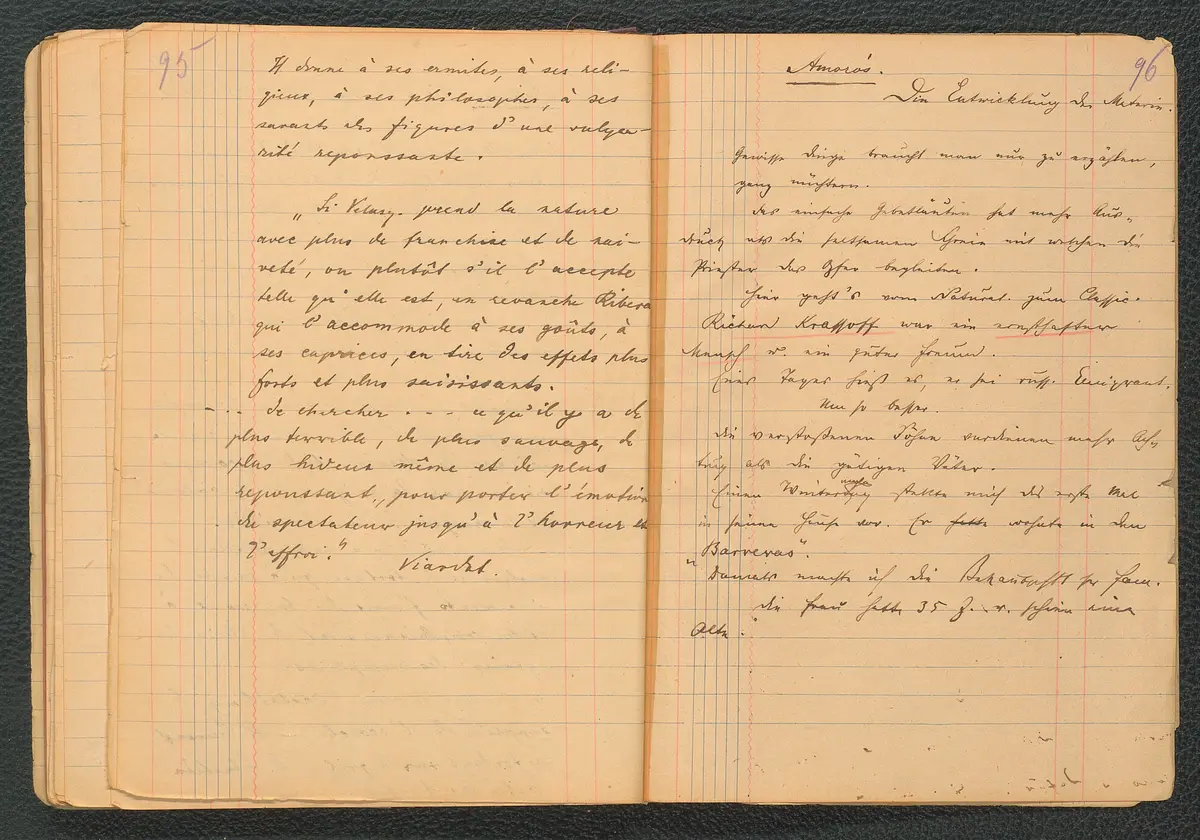 95
Il donne à ses ermites, à ses reli-
gieux, à ses philosophes, à ses
savants des figures d'une vulga-
rité repoussante.
„Si Velasq. prend la nature
avec plus de franchise et de nai-
veté, ou plutôt s'il l'accepte
telle qu'elle est, en revanche Ribera
qui l'accommode à ses goûts, à
ses caprices, en tire des effets plus
forts et plus saisissants.
- . . de chercher . - - ce qu'il y a de
plus terrible, de plus sauvage, de
plus hideux même et de plus
repoussant, pour porter l'émotion
du spectateur jusqu'à l'horreur et
l'effroi."
Viardot.
96
Amorós.
Die Entwicklung der Materie.
Gewisse Dinge braucht man nur zu erzählen,
ganz nüchtern.
Das einfache Gebetläuten hat mehr Aus-
druck als die seltsamen mit welchen die
Priester das Opfer begleiten.
Hier geht's vom Natural. zum Classic.
Richard Krassoff war ein ernsthafter
Mensch u. ein guter Freund.
Eines Tages hieß es, er sei russ. Emigrant.
Um so besser.
Die verstoßenen Söhne verdienen mehr Ach-
tung als die gütigen Väter.
Einen Winter stellte mich das erste Mal
in seinem Hause vor. Er hatte wohnte in den
„Barreras".
Damals machte ich die Bekanntschft sr Fam.
Die Frau hatte 35 J. u. schien eine
Alte."